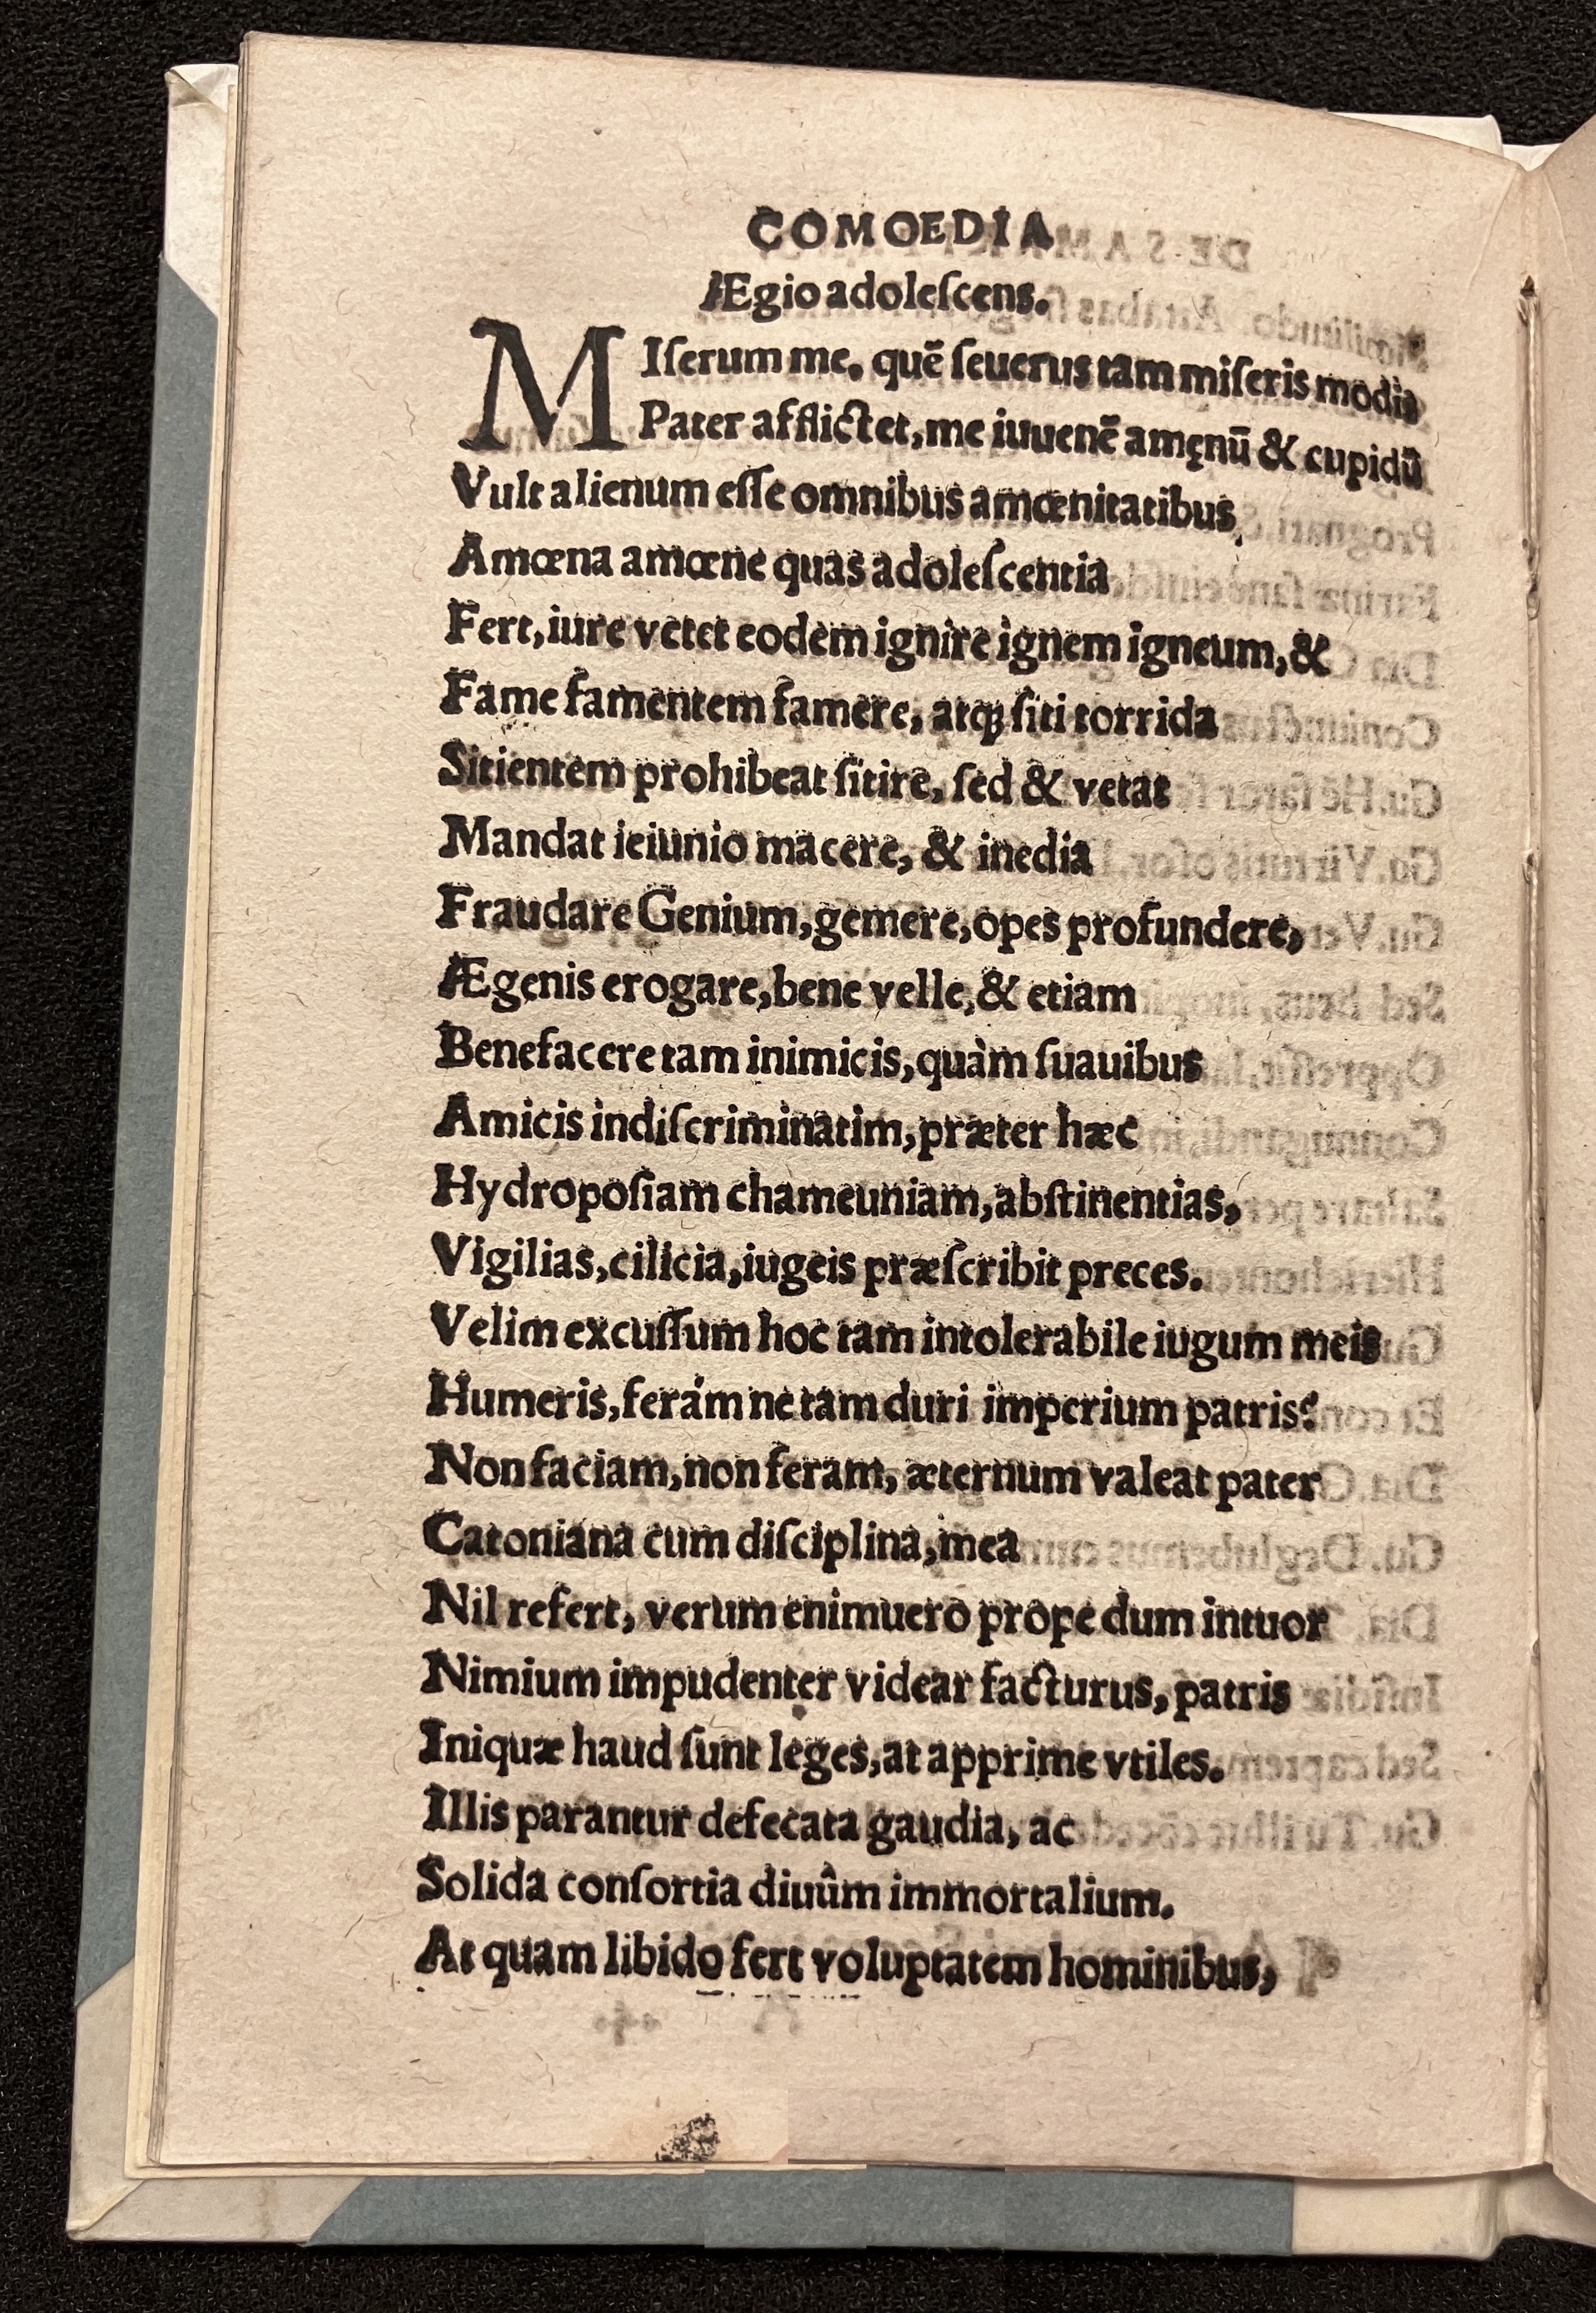 COMOEDIA
Ægio adoleſcens.
MIſerum me, quē ſeuerus tam miſeris modis
Pater afflictet, me iuuenē amęnū & cupidū
Vult alienum eſſe omnibus amœnitatibus,
Amœna amœne quas adoleſcentia
Fert, iure vetet eodem ignire ignem igneum, &
Fame famentem famere, atqꝫ ſiti torrida
Sitientem prohibeat ſitire, ſed & vetat
Mandat ieiunio macere, & inedia
Fraudare Genium, gemere, opes profundere,
Ægenis erogare, bene velle, & etiam
Benefacere tam inimicis, quàm ſuauibus
Amicis indiſcriminatim, præter hæc
Hydropoſiam chameuniam, abſtinentias,
Vigilias, cilicia, iugeis præſcribit preces.
Velim excuſſum hoc tam intolerabile iugum meis
Humeris, ferám ne tam duri imperium patris?
Non faciam, non feram, æternum valeat pater
Catoniana cum diſciplina, mea
Nil refert, verum enimuero prope dum intuor
Nimium impudenter videar facturus, patris
Iniquæ haud ſunt leges, at apprime vtiles.
Illis parantur defecata gaudia, ac
Solida conſortia diuûm immortalium.
At quam libido fert voluptatem hominibus,